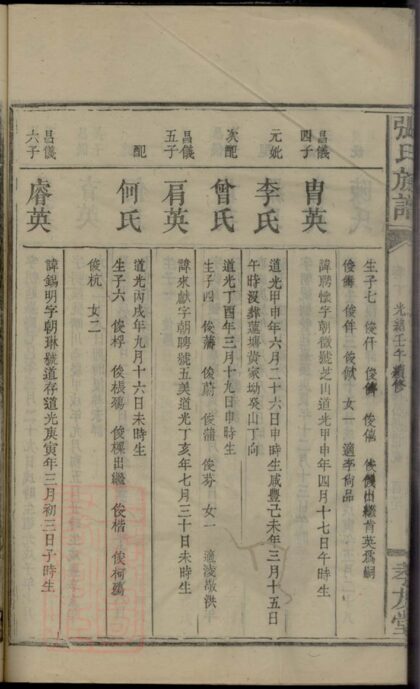 張氏族譜
光緒壬午續修
孝友堂
生子七 俊仟 俊儔 俊倕 俊儀出繼肯英為嗣
俊儔 俊伴 俊俄 女一 適李尚品
昌儀四子
胄英
諱聘懷字朝徵號芝山道光甲申年四月十七日午時生
元妣
李氏
道光甲申年六月二十六日申時生咸豐己未年三月十五日
午時沒葬蓮塘黃家坳癸山丁向
次配
曾氏
道光丁酉年三月十九日申時生
生子四 俊藩 俊蔚 俊蒲 俊芬 女一 適淩啟洪
昌儀五子
肩英
諱來獻字朝聘號五美道光丁亥年七月三十日未時生
配
何氏
道光丙戌年九月十六日未時生
生子六 俊桴 俊棖殤 俊標出繼 俊楷 俊柯殤
俊杭 女二
昌儀六子
睿英
諱錫明字朝琳號道存道光庚寅年三月初三日子時生